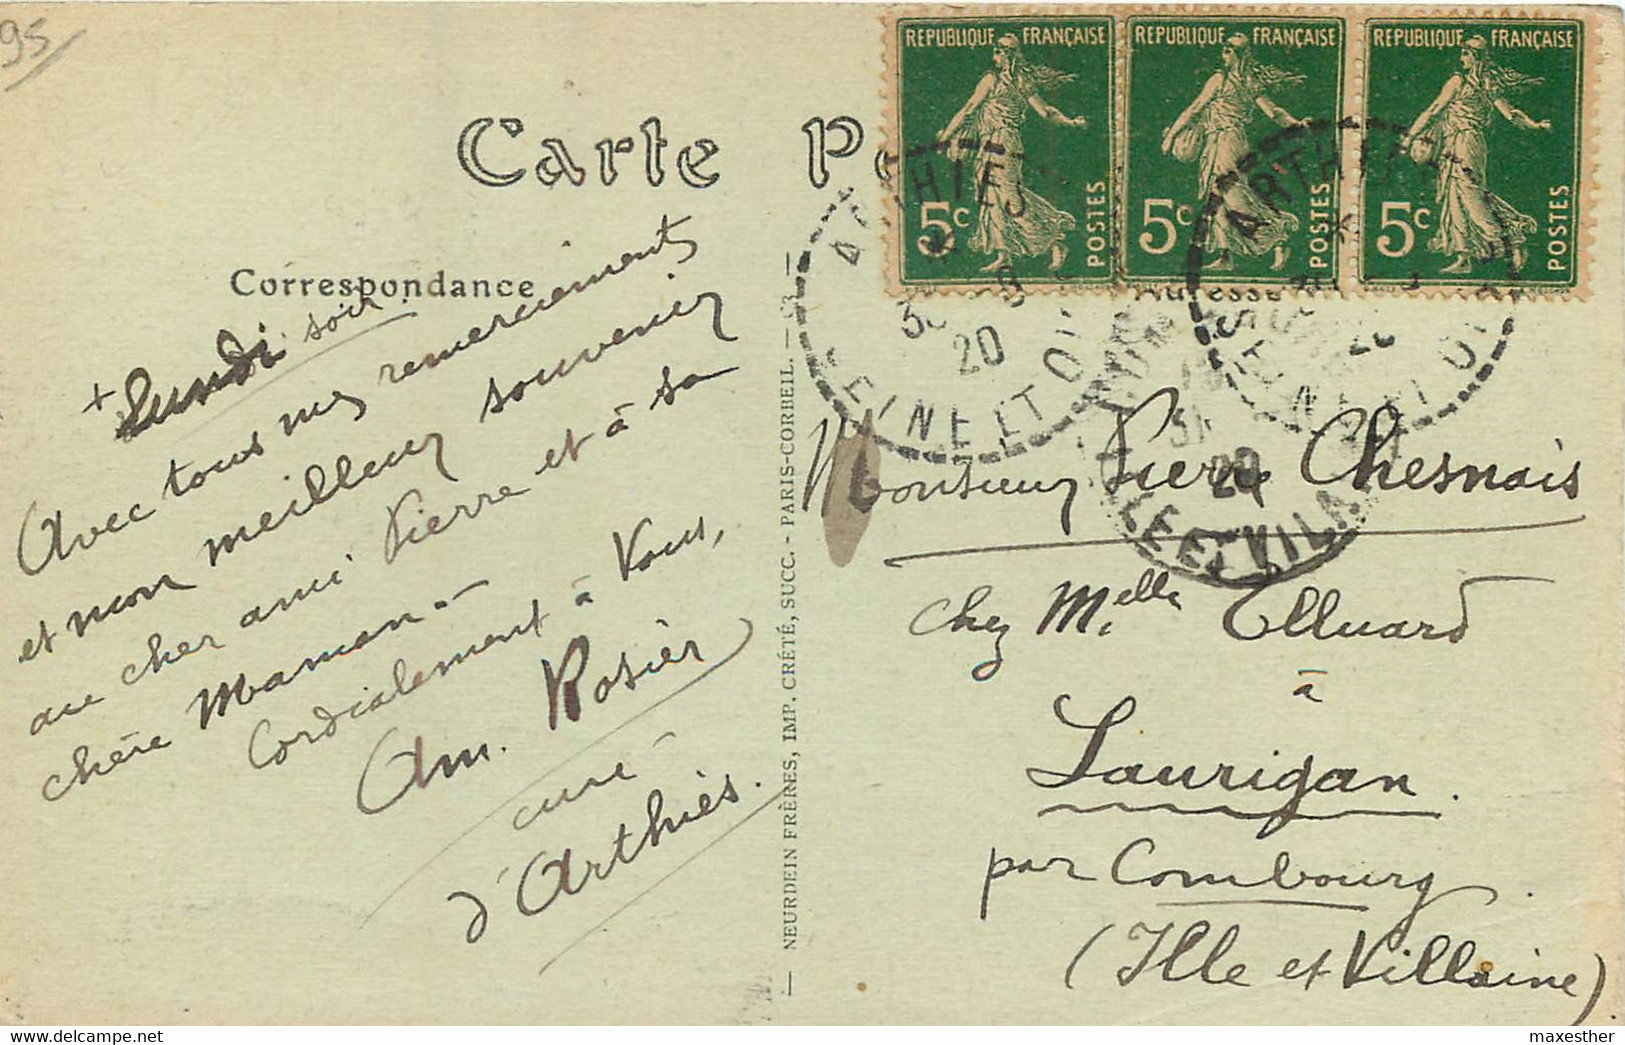 95
Carte Po
RÉPUBLIQUE FRANÇAISE
5c
POSTES
RÉPUBLIQUE FRANÇAISE
5c
POSTES
RÉPUBLIQUE FRANÇAISE
5c
POSTES
ARTHIES
30 9
20
SEINE ET OI
ARTHIE
20
31
20
ILLE-ET-VILA
Correspondance
Adresse
+ Lundi soir.
Avec tous mes remerciements
et mon meilleur souvenir
au cher ami Pierre et à sa
chère Maman. –
Cordialement à Vous,
Am. Rosier
curé
d'Arthies.
— NEURDEIN FRÈRES, IMP. CRÉTÉ, SUCC. - PARIS-CORBEIL. —
Monsieur Pierre Chesnais
chez Melle Elluard
à
Laurigan.
par Combourg.
(Ille et Villaine)
maxesther